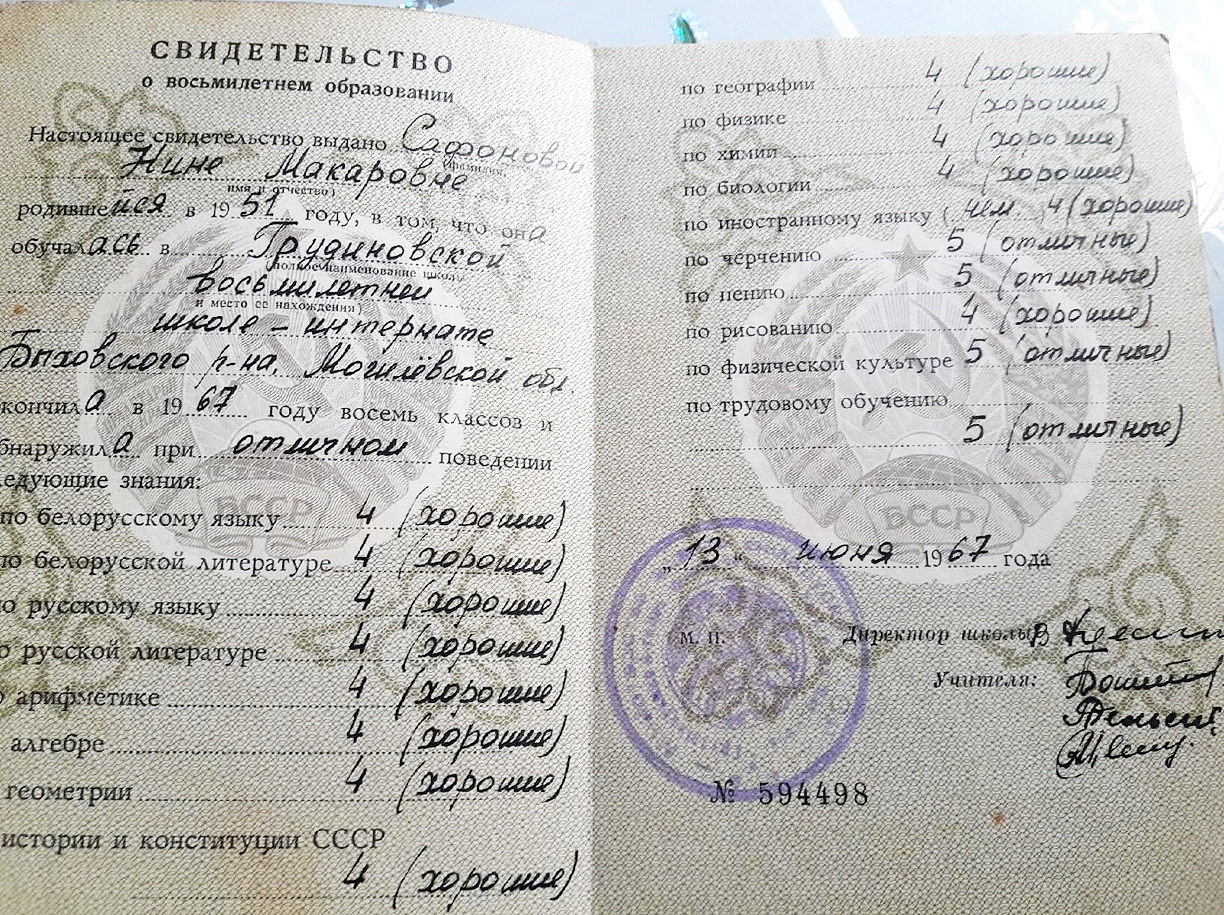 СВИДЕТЕЛЬСТВО
о восьмилетнем образовании
Настоящее свидетельство выдано Сафоновой
(фамилия,
Нине Макаровне
имя и отчество)
родившейся в 1951 году, в том, что она
обучалась в Грудиновской
(полное наименование школы
восьмилетней
и место ее нахождения)
школе – интернате
Быховского р-на, Могилёвской обл.
кончила в 1967 году восемь классов и
бнаружила при отличном поведении
ледующие знания:
по белорусскому языку 4 (хорошие)
по белорусской литературе 4 (хорошие)
по русскому языку 4 (хорошие)
о русской литературе 4 (хорошие)
о арифметике 4 (хорошие)
алгебре 4 (хорошие)
геометрии 4 (хорошие)
истории и конституции СССР
4 (хорошие)
БССР
по географии 4 (хорошие)
по физике 4 (хорошие)
по химии 4 (хорошие)
по биологии 4 (хорошие)
по иностранному языку ( нем. 4 (хорошие)
по черчению 5 (отличные)
по пению 5 (отличные)
по рисованию 4 (хорошие)
по физической культуре 5 (отличные)
по трудовому обучению
5 (отличные)
БССР
„13" июня 1967 года
М. П.
Директор школы
Учителя:
№ 594498